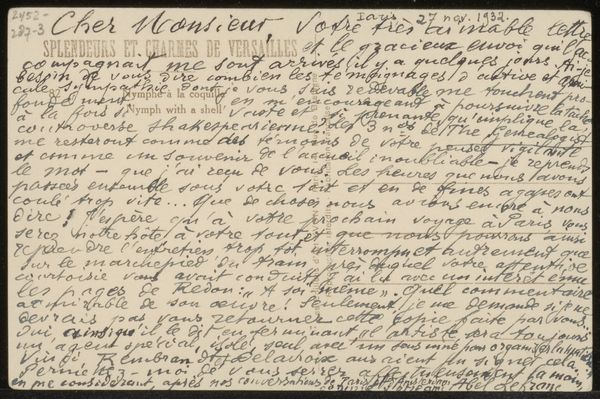 2452-
287-3
Paris, 27 nov. 1932.
Cher Monsieur, Votre très aimable lettre
SPLENDEURS ET CHARMES DE VERSAILLES
et le gracieux envoi qui l'ac
compagnait me sont arrivés il y a quelques jours. Ai-je
besoin de vous dire combien les témoignages d'active et
cale sympathie dont je vous suis redevable me touchent pro
82 Nymphe à la coquille
fondément en m'encourageant à poursuivre la tâche
Nymph with a shell
à la fois si vaste et si prenante qu'implique la
controverse shakespearienne. Les 3 nos de The Genealogist
me resteront comme des témoins de votre pensée vigilante
et comme un souvenir de l'accueil inoubliable - je reprends
le mot - que j'ai reçu de vous. Les heures que nous avons
passées ensemble sous votre toit et en de fines agapes ont
coulé trop vite... Que de choses nous avions encore à nous
dire! J'espère qu'à votre prochain voyage à Paris vous
serez notre hôte à votre tour et que nous pourrons ainsi
reprendre l'entretien trop tôt interrompu et autrement que
sur le marchepied du train près duquel votre attentive
courtoisie vous avait conduit. J'ai lu avec un intérêt ému
les pages de Redon: "A soi-même". Quel commentaire
admirable de son œuvre! Seulement, je me demande si je ne
devrais pas vous retourner cette copie faite par vous.
Oui, ainsi qu'il le dit en terminant, le artiste sera toujours
un agent spécial, isolé, seul avec un sens inné pour organiser la matière
Vinci, Rembrandt, Delacroix auraient pu signer cela.
Permettez-moi de vous serrer affectueusement la main,
en me considérant, après nos conversations de Paris et d'Amsterdam
Abel Lefranc